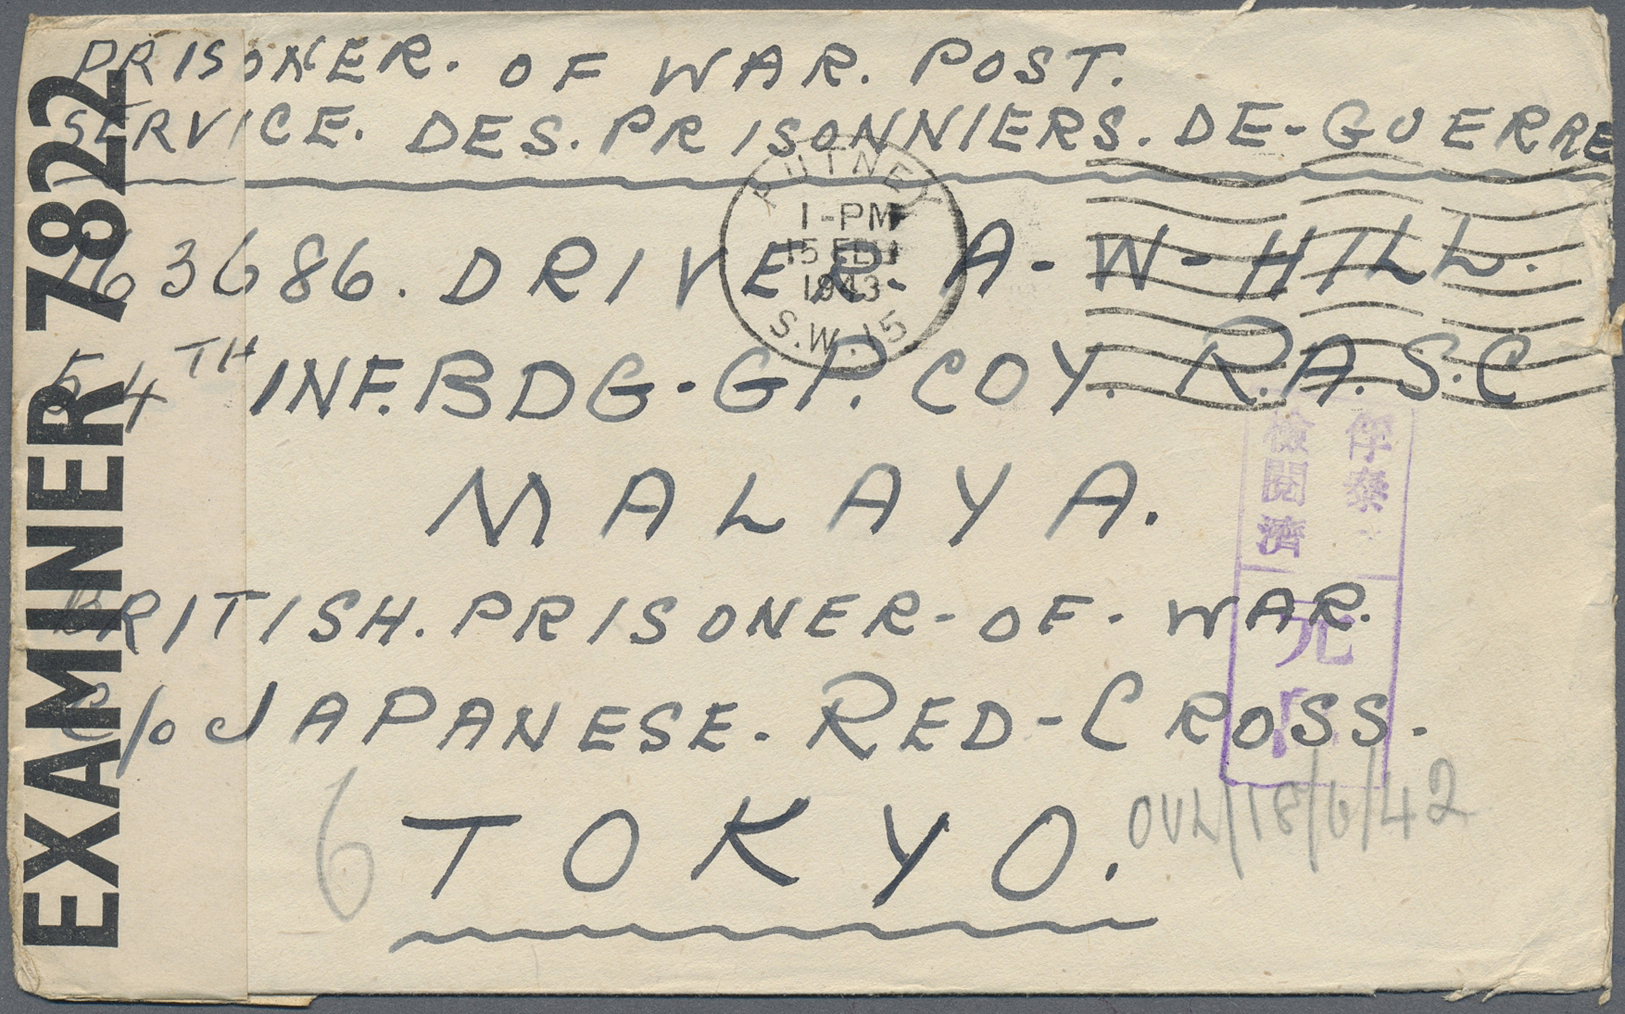 PRISONER. OF WAR. POST.
SERVICE. DES. PRISONNIERS. DE-GUERRE
PUTNEY
1-PM
15 FEB
1943
S.W.15
163686. DRIVER- A-W-HILL.
54TH INF. BDG-GP. COY. R.A.S.C
MALAYA.
BRITISH. PRISONER-OF-WAR.
C/O JAPANESE. RED-CROSS.
TOKYO.
6
EXAMINER 7822
俘泰
検閲済